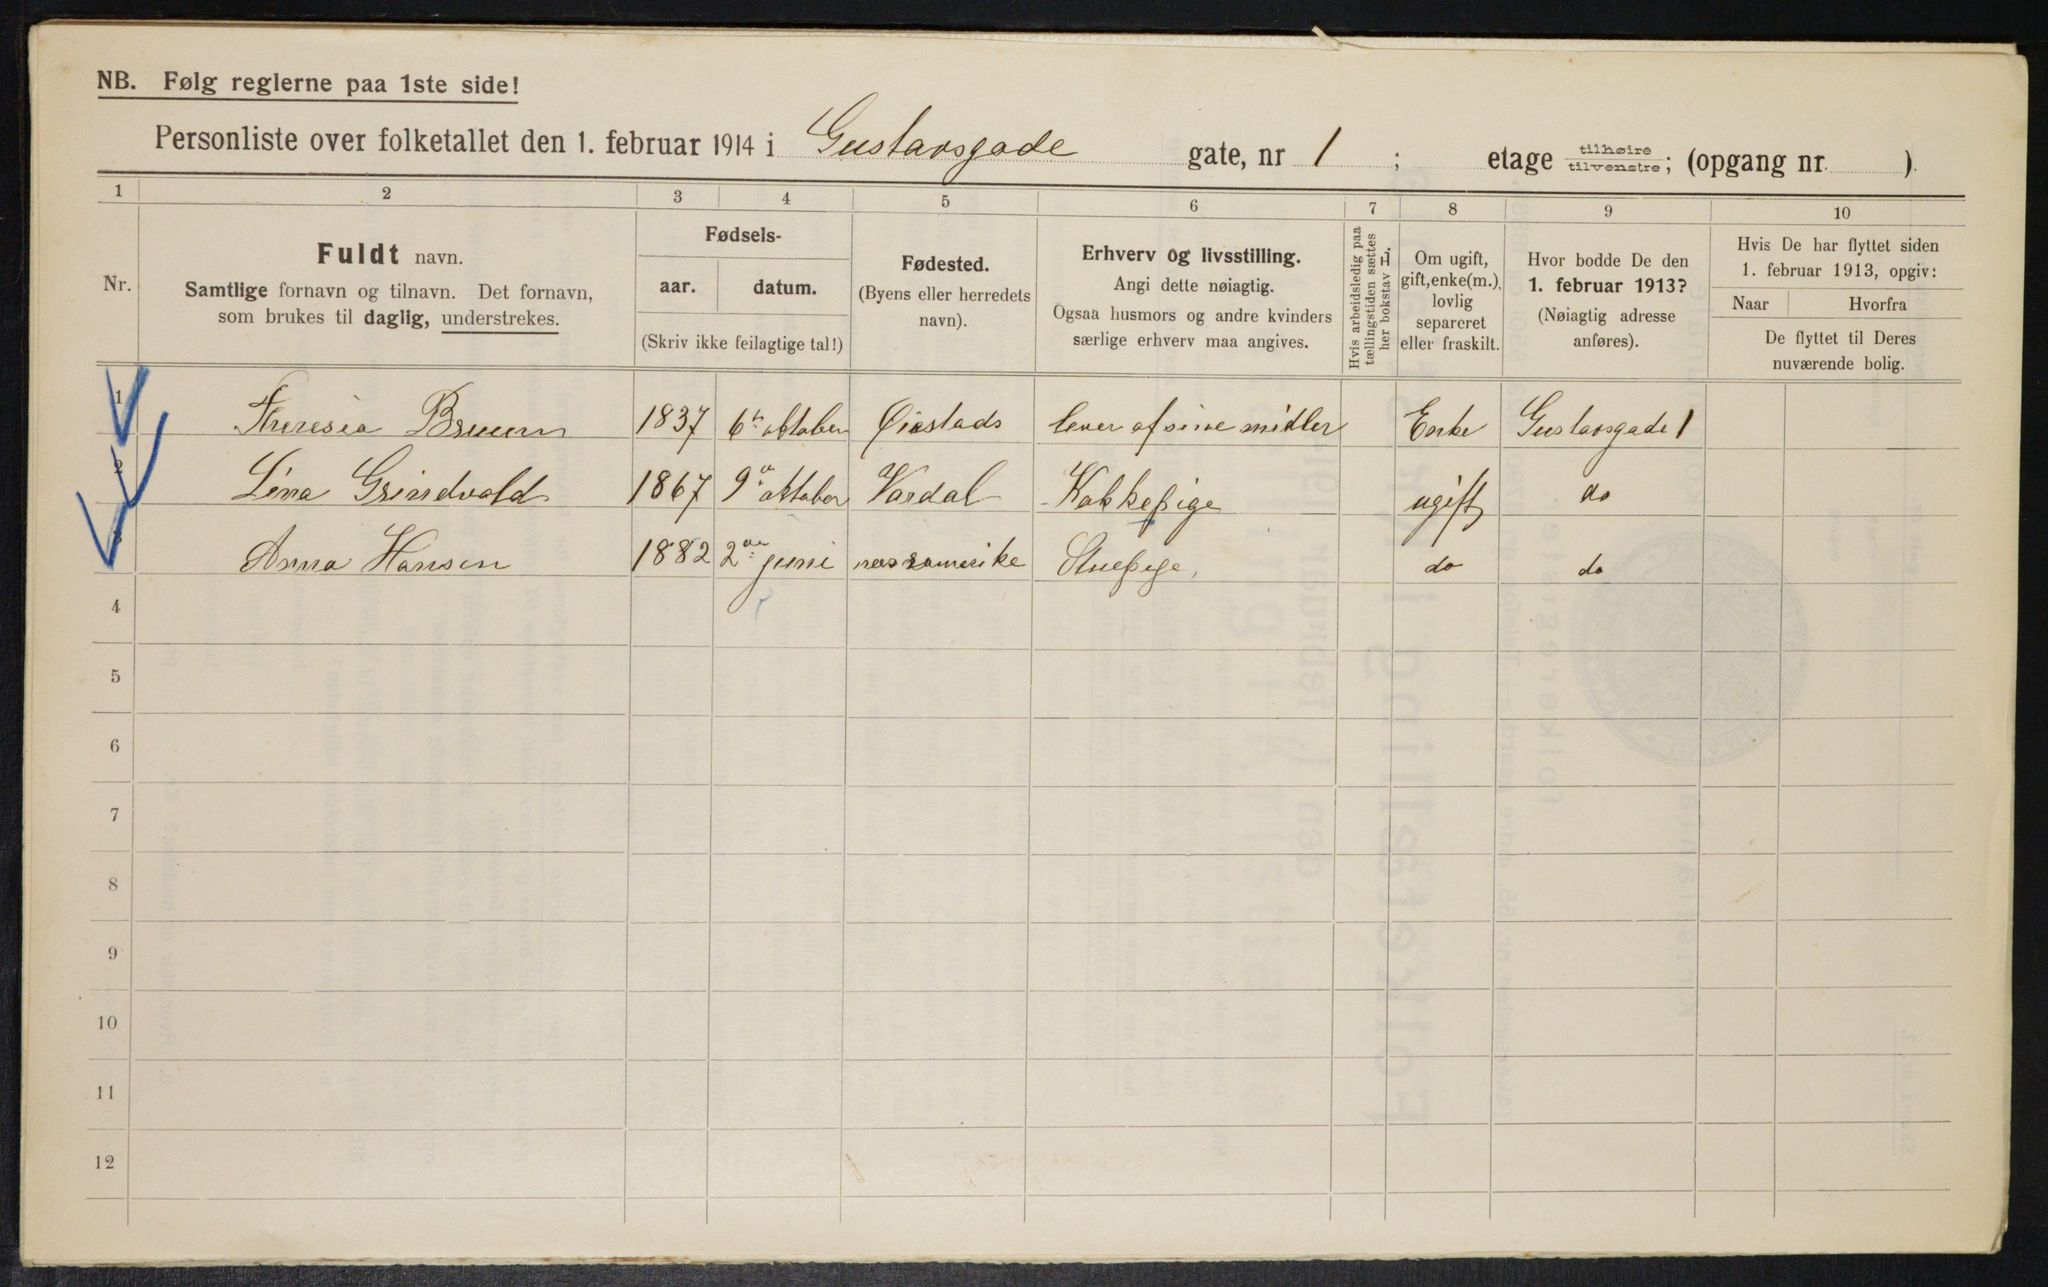 NB. Følg reglerne paa 1ste side!
Personliste over folketallet den 1. februar 1914 i Gustavsgade gate, nr 1 ; etage tilhøire tilvenstre; (opgang nr. ).
1 2 3 4 5 6 7 8 9 10
Nr.
Fuldt navn.
Samtlige fornavn og tilnavn. Det fornavn,
som brukes til daglig, understrekes.
Fødsels-
aar. datum.
(Skriv ikke feilagtige tal!)
Fødested.
(Byens eller herredets
navn).
Erhverv og livsstilling.
Angi dette nøiagtig.
Ogsaa husmors og andre kvinders
særlige erhverv maa angives.
Hvis arbeidsledig paa
tællingstiden sættes
her bokstav L.
Om ugift,
gift, enke(m.),
lovlig
separeret
eller fraskilt.
Hvor bodde De den
1. februar 1913?
(Nøiagtig adresse
anføres).
Hvis De har flyttet siden
1. februar 1913, opgiv:
Naar Hvorfra
De flyttet til Deres
nuværende bolig.
1 Theresia Bruun 1837 6te oktober Øiestads lever af sine midler Enke Gustavsgade 1
2 Lina Grindvold 1867 9de oktober Vardal Kokkepige ugift do
3 Anna Hansen 1882 2den juni Stuepige, do do
4
5
6
7
8
9
10
11
12